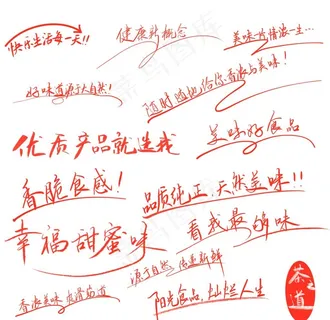 快乐生活每一天!!
健康新概念
美味、情浓一生...
好味道源于大自然!
随时随地给你香浓与美味!
优质产品就选我
美味好食品
香脆食感!
品质纯正,天然美味!!
看我最够味
幸福甜蜜味
源于自然、传承新鲜
香浓美味
阳光食品,灿烂人生
茶道